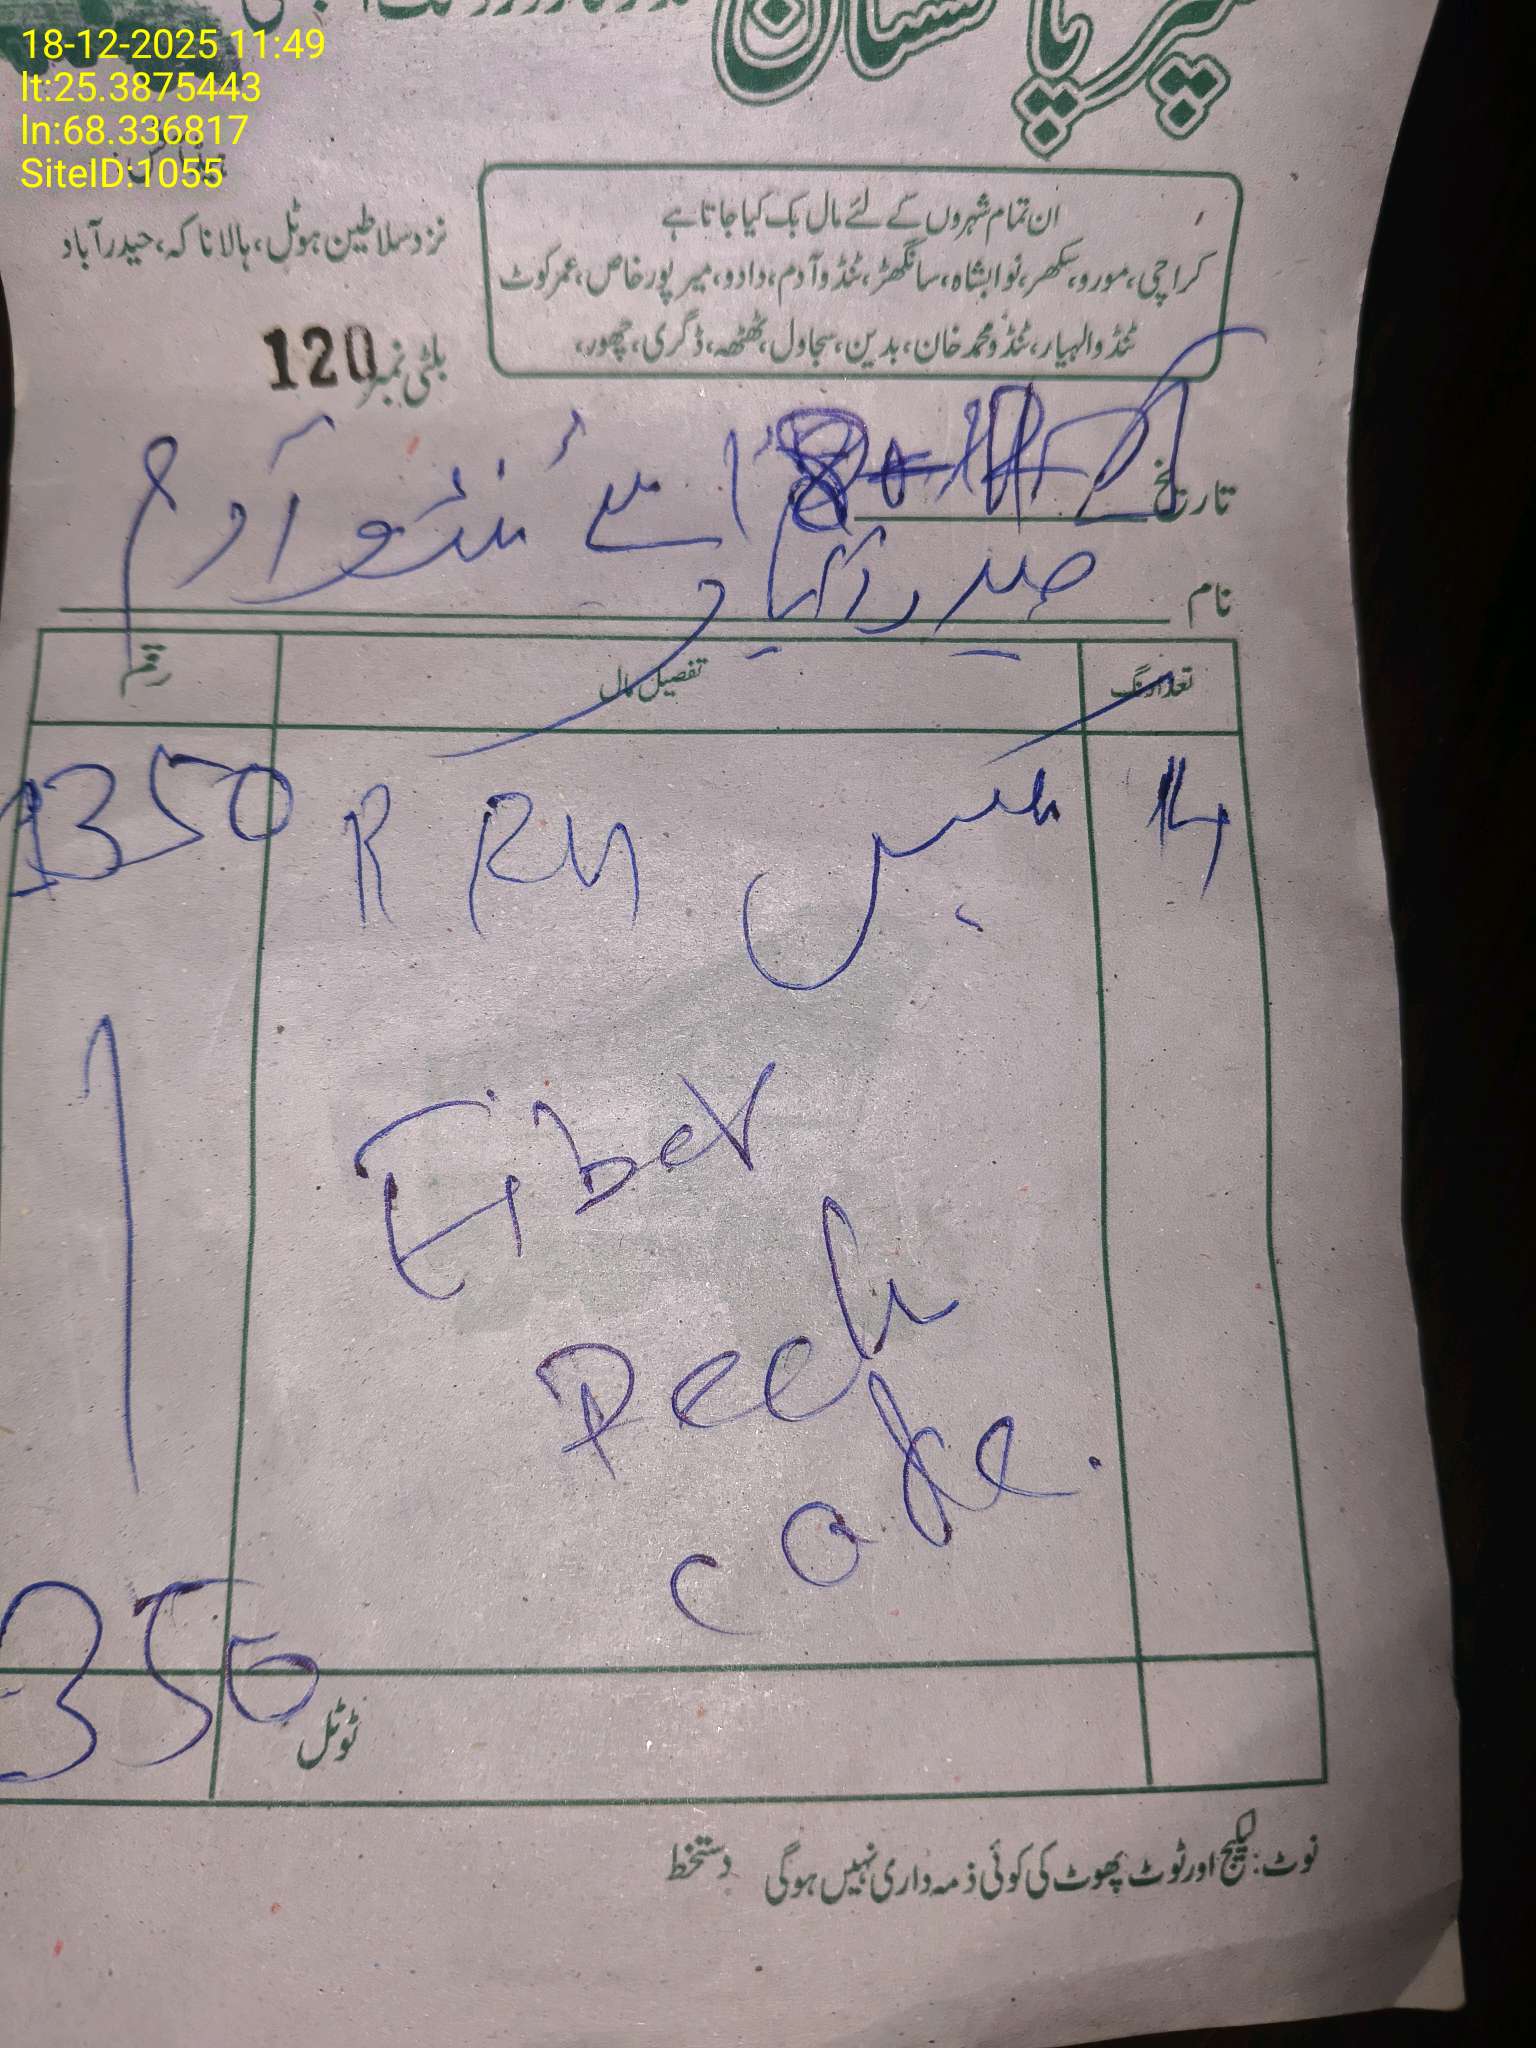 18-12-2025 11:49
lt:25.3875443
ln:68.336817
SiteID:1055
سپر پاکستان
ان تمام شہروں کے لئے مال بک کیا جاتا ہے
کراچی، مورو، سکھر، نوابشاہ، سانگھڑ، ٹنڈو آدم، دادو، میر پور خاص، عمر کوٹ
ٹنڈو الہیار، ٹنڈو محمد خان، بدین، سجاول، ٹھٹھہ، ڈگری، چھور،
نزد سلاطین ہوٹل، ہالا ناکہ، حیدرآباد
بلٹی نمبر 120
تاریخ
نام حیدرآباد سے ٹنڈو آدم
تعداد نگ تفصیل مال رقم
14 بکس 1350
Fiber
Pech
cake.
ٹوٹل 350
نوٹ: لیکیج اور ٹوٹ پھوٹ کی کوئی ذمہ داری نہیں ہوگی دستخط